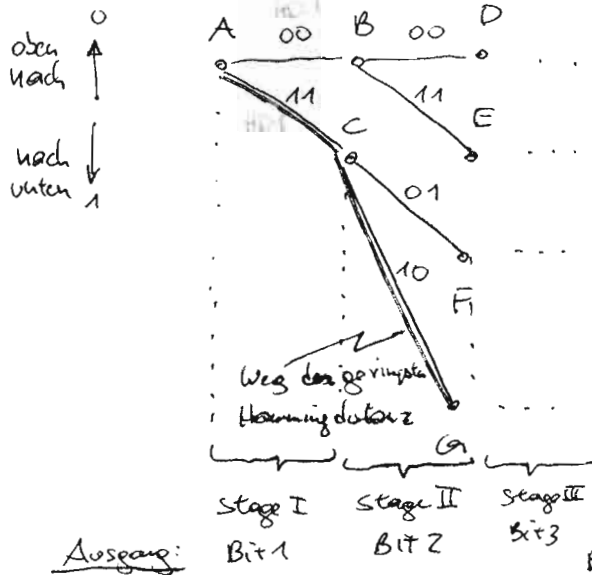 0
oben
nach
nach
unten
1
A 00 B 00 D
11 11
C E
01
10
F
Weg der geringsten
Hammingdistanz
G
Stage I Stage II Stage III
Ausgang: Bit 1 Bit 2 Bit 3